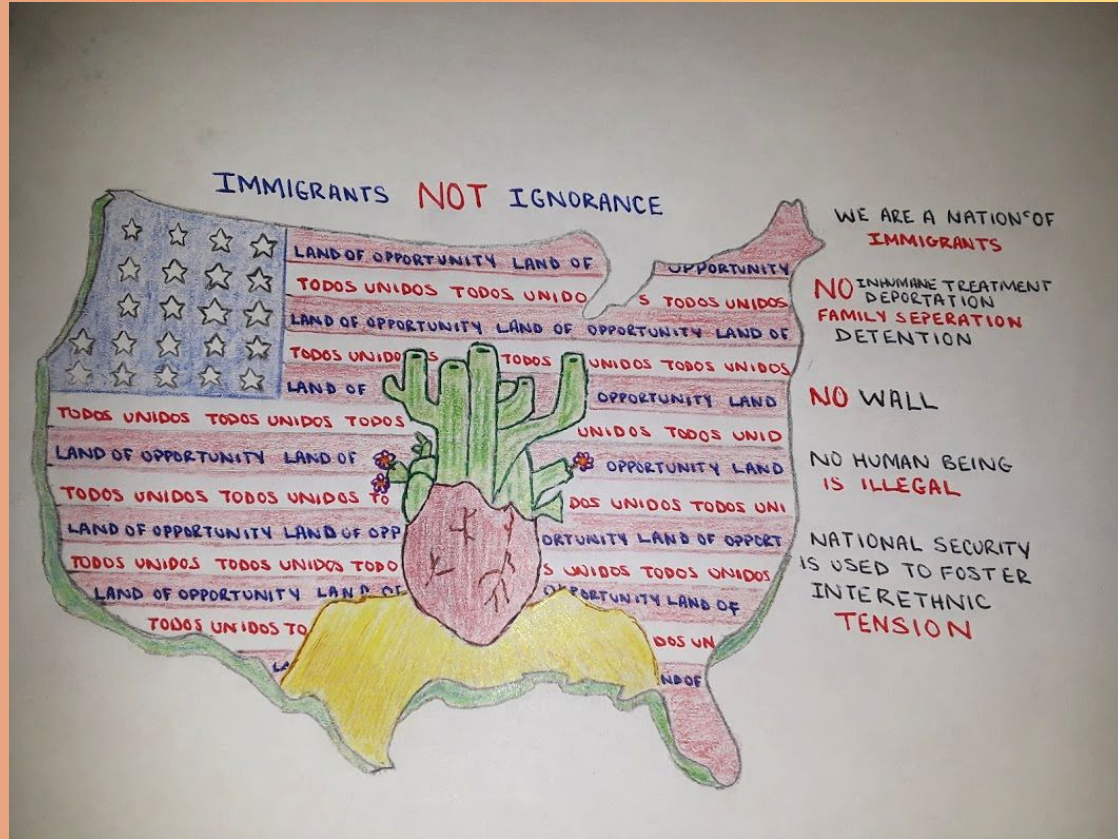 IMMIGRANTS NOT IGNORANCE
LAND OF OPPORTUNITY LAND OF OPPORTUNITY
TODOS UNIDOS TODOS UNIDO S TODOS UNIDOS
LAND OF OPPORTUNITY LAND OF OPPORTUNITY LAND OF
TODOS UNIDOS TODOS UNIDOS TODOS UNIDOS
LAND OF OPPORTUNITY LAND
TODOS UNIDOS TODOS UNIDOS TODOS UNIDOS TODOS UNID
LAND OF OPPORTUNITY LAND OF OPPORTUNITY LAND
TODOS UNIDOS TODOS UNIDOS TO DOS UNIDOS TODOS UNI
LAND OF OPPORTUNITY LAND OF OPP ORTUNITY LAND OF OPPORT
TODOS UNIDOS TODOS UNIDOS TODO S UNIDOS TODOS UNIDOS
LAND OF OPPORTUNITY LAND OF OPPORTUNITY LAND OF
TODOS UNIDOS TO DOS UN
LA ND OF
WE ARE A NATION OF
IMMIGRANTS
NO INHUMANE TREATMENT
DEPORTATION
FAMILY SEPERATION
DETENTION
NO WALL
NO HUMAN BEING
IS ILLEGAL
NATIONAL SECURITY
IS USED TO FOSTER
INTERETHNIC
TENSION